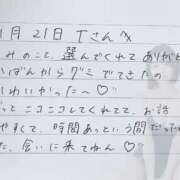 1月21日 Tさんへ
みのこと、選んでくれてありがと
ばんからグミでてきたの
かわいかった〜♡
っと ニコニコしてくれてて、お話
やすくて、時間あっという間だって
た、会いに来てねん♡